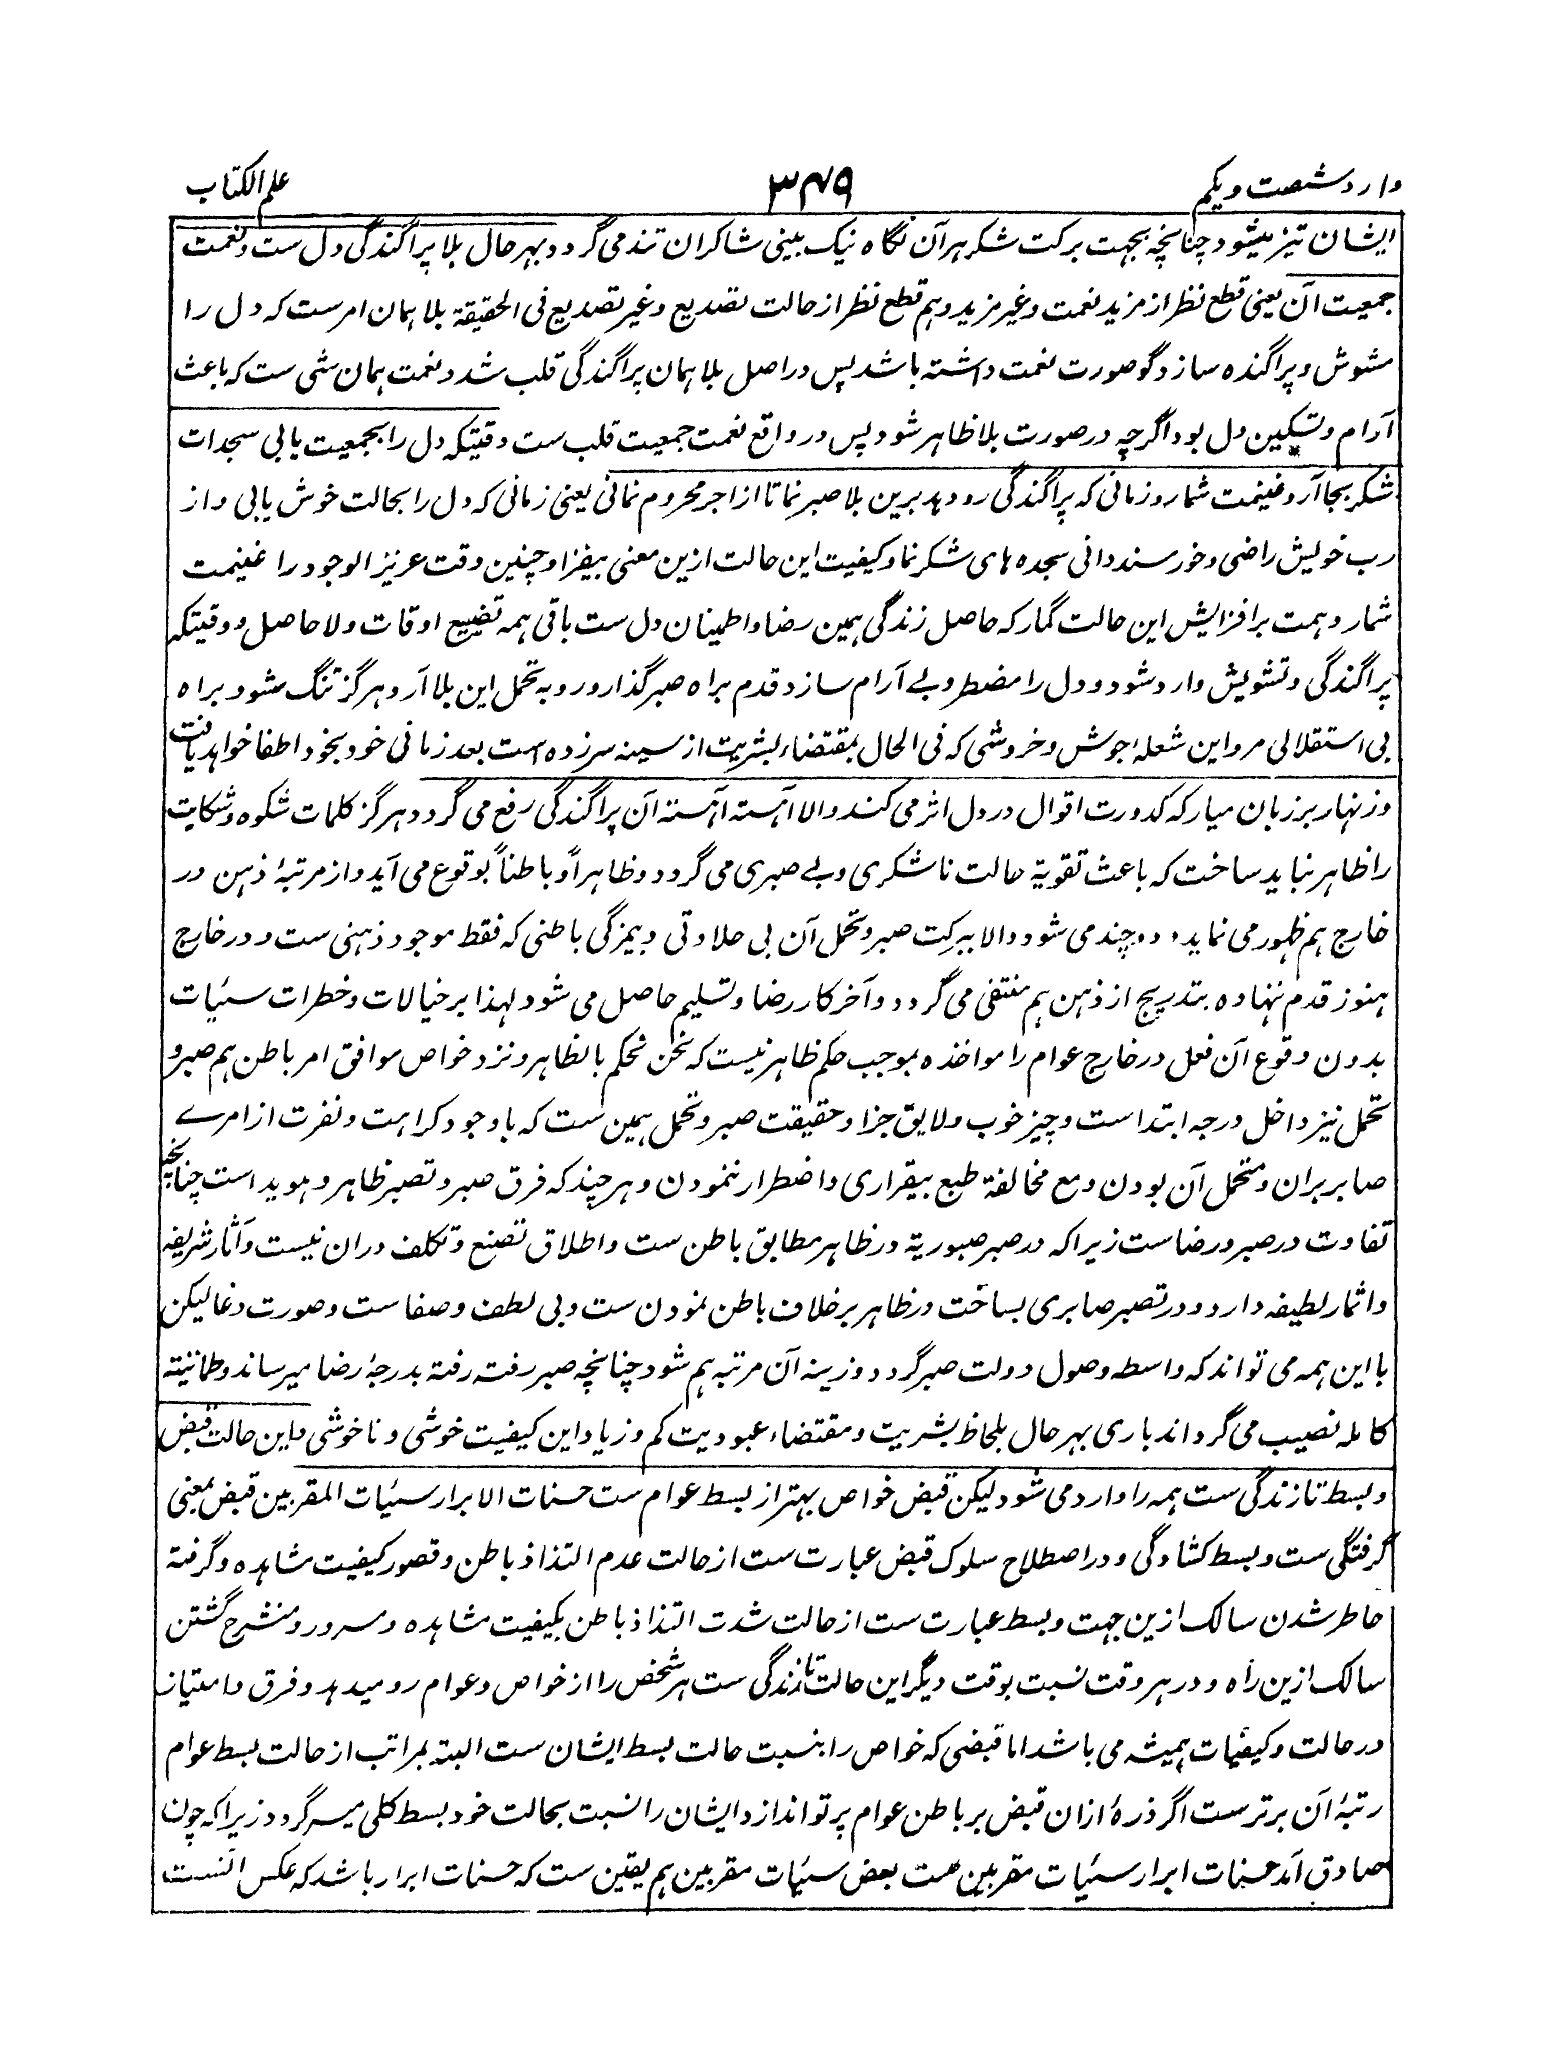 وارد شصت و یکم ۳۴۹ علم الکتاب
ایشان تیز میشود چنانچه بجهت برکت شکر هر آن نگاه نیک بینی شاکران تند می گردد و بهر حال بلا پراگندگی دل ست و نعمت
جمعیت آن یعنی قطع نظر از مزید نعمت و غیر مزید و هم قطع نظر از حالت تصدیع و غیر تصدیع فی الحقیقة بلا همان امرست که دل را
مشوش و پراگنده سازد گو صورت نعمت داشته باشد پس در اصل بلا همان پراگندگی قلب شد و نعمت همان شی ست که باعث
آرام و تسکین دل بود اگرچه در صورت بلا ظاهر شود پس در واقع نعمت جمعیت قلب ست وقتیکه دل را بجمعیت یابی سجدات
شکر بجا آر و غنیمت شمار و زمانی که پراگندگی رو دهد برین بلا صبر نما تا از اجر محروم نمانی یعنی زمانی که دل را بحالت خوش یابی و از
رب خویش راضی و خورسند دانی سجده های شکر نما و کیفیت این حالت ازین معنی بیفزا و چنین وقت عزیز الوجود را غنیمت
شمار و همت بر افزایش این حالت گمار که حاصل زندگی همین رضا و اطمینان دل ست باقی همه تضییع اوقات و لا حاصل و وقتیکه
پراگندگی و تشویش وارد شود و دل را مضطر و بے آرام سازد قدم براه صبر گذار و رو به تحمل این بلا آر و هرگز تنگ مشو و براه
بی استقلالی مرو این شعله جوش و خروشی که فی الحال بمقتضاء بشریت از سینه سرزده است بعد زمانی خود بخود اطفا خواهد یافت
و زنهار بر زبان میار که کدورت اقوال در دل اثر می کند و الا آهسته آهسته آن پراگندگی رفع می گردد هرگز کلمات شکوه و شکایت
را ظاهر نباید ساخت که باعث تقویة حالت ناشکری و بے صبری می گردد و ظاهراً و باطناً بوقوع می آید و از مرتبهٔ ذهن در
خارج هم ظهور می نماید و دو چند می شود و الا ببرکت صبر و تحمل آن بی حلاوتی و بیمزگی باطنی که فقط موجود ذهنی ست و در خارج
هنوز قدم ننهاده بتدریج از ذهن هم منتفی می گردد و آخر کار رضا و تسلیم حاصل می شود لهذا بر خیالات و خطرات سئیات
بدون وقوع آن فعل در خارج عوام را مواخذه بموجب حکم ظاهر نیست که نحن نحکم بالظاهر و نزد خواص موافق امر باطن هم صبر و
تحمل نیز داخل درجه ابتداست و چیز خوب و لایق جزا و حقیقت صبر و تحمل همین ست که باوجود کراهت و نفرت از امرے
صابر بران و متحمل آن بودن و مع مخالفة طبع بیقراری و اضطرار ننمودن و هر چند که فرق صبر و تصبر ظاهر و هویداست چنانچه
تفاوت در صبر و رضاست زیرا که در صبر صبوریة در ظاهر مطابق باطن ست و اطلاق تصنع و تکلف دران نیست و آثار شریفه
و اثمار لطیفه دارد و در تصبر صابری بساخت در ظاهر بر خلاف باطن نمودن ست و بی لطف و صفاست و صورت دغا لیکن
با این همه می تواند که واسطه وصول دولت صبر گردد و زینه آن مرتبه هم شود چنانچه صبر رفته رفته بدرجهٔ رضا میرساند و طمانیته
کامله نصیب می گرداند باری بهر حال بلحاظ بشریت و مقتضاء عبودیت کم و زیاد این کیفیت خوشی و ناخوشی و این حالت قبض
و بسط تا زندگی ست همه را وارد می شود لیکن قبض خواص بهتر از بسط عوام ست حسنات الابرار سئیات المقربین قبض بمعنی
گرفتگی ست و بسط کشادگی و در اصطلاح سلوک قبض عبارت ست از حالت عدم التذاذ باطن و قصور کیفیت مشاهده و گرفته
خاطر شدن سالک ازین جهت و بسط عبارت ست از حالت شدت التذاذ باطن بکیفیت مشاهده و مسرور و منشرح گشتن
سالک ازین راه و در هر وقت نسبت بوقت دیگر این حالت تا زندگی ست هر شخص را از خواص و عوام رو میدهد و فرق و امتیاز
در حالت و کیفیات همیشه می باشد اما قبضی که خواص را بنسبت حالت بسط ایشان ست البته بمراتب از حالت بسط عوام
رتبهٔ آن برترست اگر ذرهٔ ازان قبض بر باطن عوام پرتو اندازد ایشان را نسبت بحالت خود بسط کلی میسر گردد زیرا که چون
صادق آمد حسنات ابرار سئیات مقربین ست بعض سئیات مقربین هم یقین ست که حسنات ابرار باشد که عکس آنست